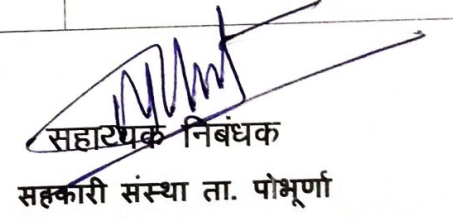 सहाय्यक निबंधक
सहकारी संस्था ता. पोंभूर्णा